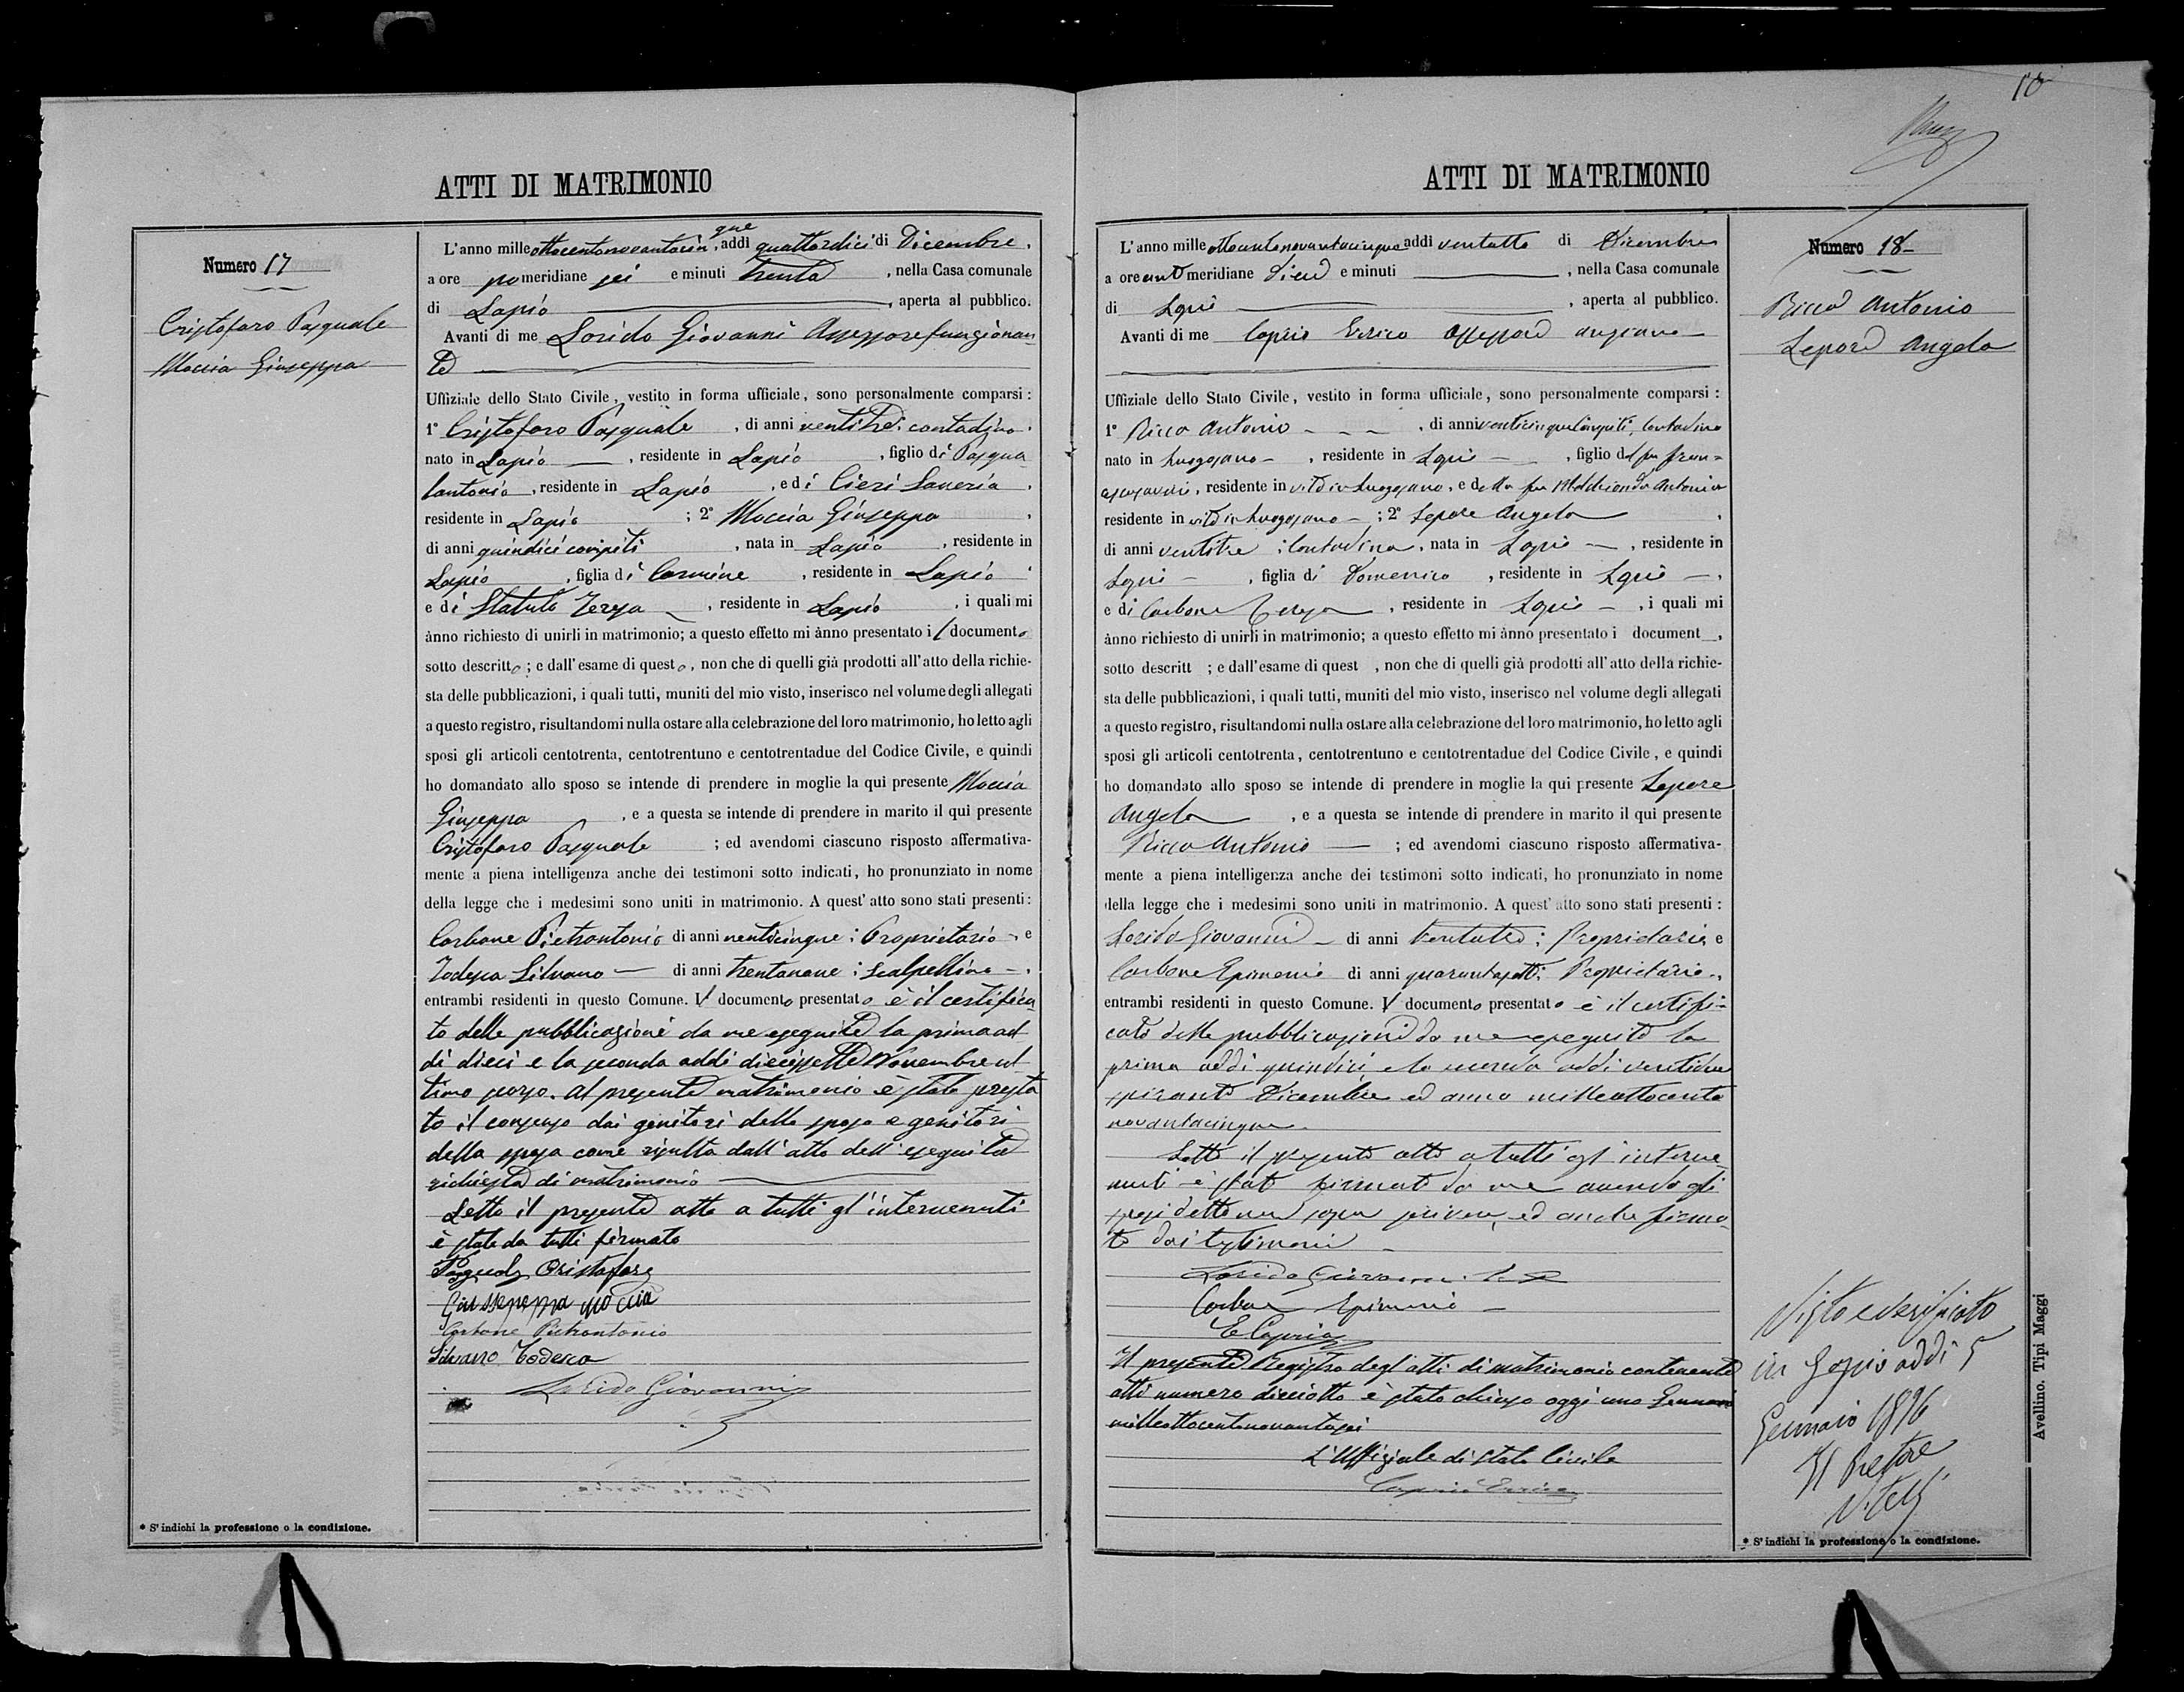 ATTI DI MATRIMONIO
Numero 17
Cristofaro Pasquale
Moccia Giuseppa
L'anno mille ottocentonovantacin que, addì quattordici di Dicembre,
a ore pomeridiane sei e minuti trenta, nella Casa comunale
di Lapio, aperta al pubblico.
Avanti di me Losido Giovanni Assessore funzionan
te
Uffiziale dello Stato Civile, vestito in forma ufficiale, sono personalmente comparsi:
1° Cristofaro Pasquale, di anni ventitre: contadino.
nato in Lapio, residente in Lapio, figlio di Pasqua
lantonio, residente in Lapio, e di Cieri Saveria,
residente in Lapio; 2° Moccia Giuseppa,
di anni quindici compiti, nata in Lapio, residente in
Lapio, figlia di Carmine, residente in Lapio,
e di Statuto Teresa, residente in Lapio, i quali mi
ànno richiesto di unirli in matrimonio; a questo effetto mi ànno presentato il documento
sotto descritto; e dall'esame di questo, non che di quelli già prodotti all'atto della richie-
sta delle pubblicazioni, i quali tutti, muniti del mio visto, inserisco nel volume degli allegati
a questo registro, risultandomi nulla ostare alla celebrazione del loro matrimonio, ho letto agli
sposi gli articoli centotrenta, centotrentuno e centotrentadue del Codice Civile, e quindi
ho domandato allo sposo se intende di prendere in moglie la qui presente Moccia
Giuseppa, e a questa se intende di prendere in marito il qui presente
Cristofaro Pasquale; ed avendomi ciascuno risposto affermativa-
mente a piena intelligenza anche dei testimoni sotto indicati, ho pronunziato in nome
della legge che i medesimi sono uniti in matrimonio. A quest'atto sono stati presenti:
Carbone Pietrantonio di anni venticinque: Proprietario, e
Todesca Silvano di anni trentanove: Scalpellino.
entrambi residenti in questo Comune. Il documento presentato è il certifica
to delle pubblicazioni da me eseguite la prima ad
dì dieci e la seconda addì diecissette Novembre ul
timo scorso. Al presente matrimonio è stato presta
to il consenso dai genitori dello sposo e genitori
della sposa come risulta dall'atto dell'eseguita
richiesta di matrimonio
Letto il presente atto a tutti gl'intervenuti
è stato da tutti firmato
Pasquale Cristofaro
Giusseppa Moccia
Carbone Pietrantonio
Silvano Todesca
Losido Giovanni
* S'indichi la professione o la condizione.
18
ATTI DI MATRIMONIO
Numero 18
Ricco Antonio
Lepore Angela
L'anno mille ottocentonovantacinque addì ventotto di Dicembre
a ore antimeridiane dieci e minuti, nella Casa comunale
di Lapio, aperta al pubblico.
Avanti di me Caprio Errico Assessore anziano
Uffiziale dello Stato Civile, vestito in forma ufficiale, sono personalmente comparsi:
1° Ricco Antonio, di anni venticinque compiti, Contadino
nato in Luogosano, residente in Lapio, figlio del fu Fran-
cescosaverio, residente in vita in Luogosano, e della fu Melchionda Antonia
residente in vita in Luogosano; 2° Lepore Angela,
di anni ventitre: Contadina, nata in Lapio, residente in
Lapio, figlia di Domenico, residente in Lapio,
e di Carbone Teresa, residente in Lapio, i quali mi
ànno richiesto di unirli in matrimonio; a questo effetto mi ànno presentato i document,
sotto descritt ; e dall'esame di quest , non che di quelli già prodotti all'atto della richie-
sta delle pubblicazioni, i quali tutti, muniti del mio visto, inserisco nel volume degli allegati
a questo registro, risultandomi nulla ostare alla celebrazione del loro matrimonio, ho letto agli
sposi gli articoli centotrenta, centotrentuno e centotrentadue del Codice Civile, e quindi
ho domandato allo sposo se intende di prendere in moglie la qui presente Lepore
Angela, e a questa se intende di prendere in marito il qui presente
Ricco Antonio; ed avendomi ciascuno risposto affermativa-
mente a piena intelligenza anche dei testimoni sotto indicati, ho pronunziato in nome
della legge che i medesimi sono uniti in matrimonio. A quest'atto sono stati presenti:
Losido Giovanni di anni: Proprietario, e
Carbone Epimenio di anni quarantasette: Proprietario,
entrambi residenti in questo Comune. Il documento presentato è il certifi-
cato delle pubblicazioni da me eseguite la
prima addì quindici, e la seconda addì ventidue
spirante Dicembre ed anno milleottocento
novantacinque.
Letto il presente atto a tutti gl'interve
nuti è stato firmato da me avendo gli
sposi detto non saper scrivere, ed anche firma-
to dai testimoni
Losido Giovanni
Carbone Epimenio
E Caprio
Il presente Registro degl'atti di matrimonio contenente
atti numero dieciotto è stato chiuso oggi uno Gennaro
milleottocentonovantasei
L'Uffiziale di Stato Civile
Caprio Errico
Visto e verificato
in Lapio addì 5
Gennaio 1896
Il Pretore
* S'indichi la professione o la condizione.
Avellino. Tipi Maggi